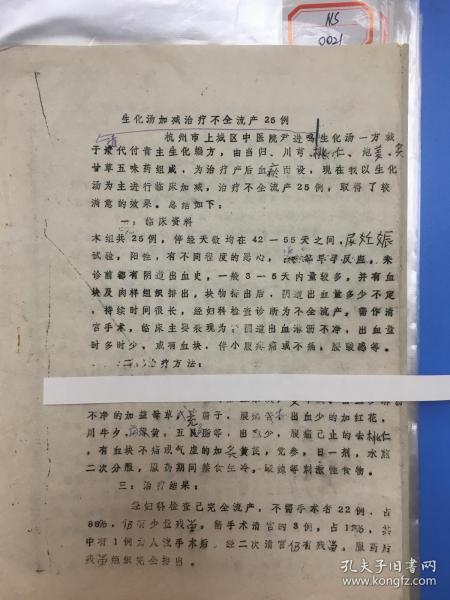 NS
0021
生化汤加减治疗不全流产25例
杭州市上城区中医院尹进 生化汤一方载
于清代付青主生化编方，由当归、川芎、桃仁、炮姜、炙
甘草五味药组成，为治疗产后血瘀而设，现在我以生化
汤为主进行临床加减，治疗不全流产25例，取得了较
满意的效果。总结如下：
一：临床资料
本组共25例，停经天数均在42—55天之间，尿妊娠
试验，阳性，有不同程度的恶心，等早孕反应。来
诊前都有阴道出血史，一般3—5天内量较多，并有血
块及肉样组织排出，块物排出后，阴道出血量多少不定
，持续时间很长，经妇科检查诊断为不全流产。需作清
宫手术，临床主要表现为：阴道出血淋沥不净，出血量
时多时少，或有血块，伴小腹疼痛或不痛，腰酸感等。
二：治疗方法：
不净的加益母草 子，腹 出血少的加红花，
川牛夕， 黄，五 脂等，出 少，腹痛已止的去桃仁
，有血块不痛或气虚的加炙黄芪，党参，日一剂，水煎
二次分服，服药期间禁食生冷，酸辣等刺激性食物。
三：治疗结果：
经妇科检查已完全流产，不需手术者22例，占
88%，仍有少量残留，需手术清宫的3例，占12%，其
中有1例为人流手术后，经二次清宫仍有残留，服药后
残留组织完全排出。
孔夫子旧书网